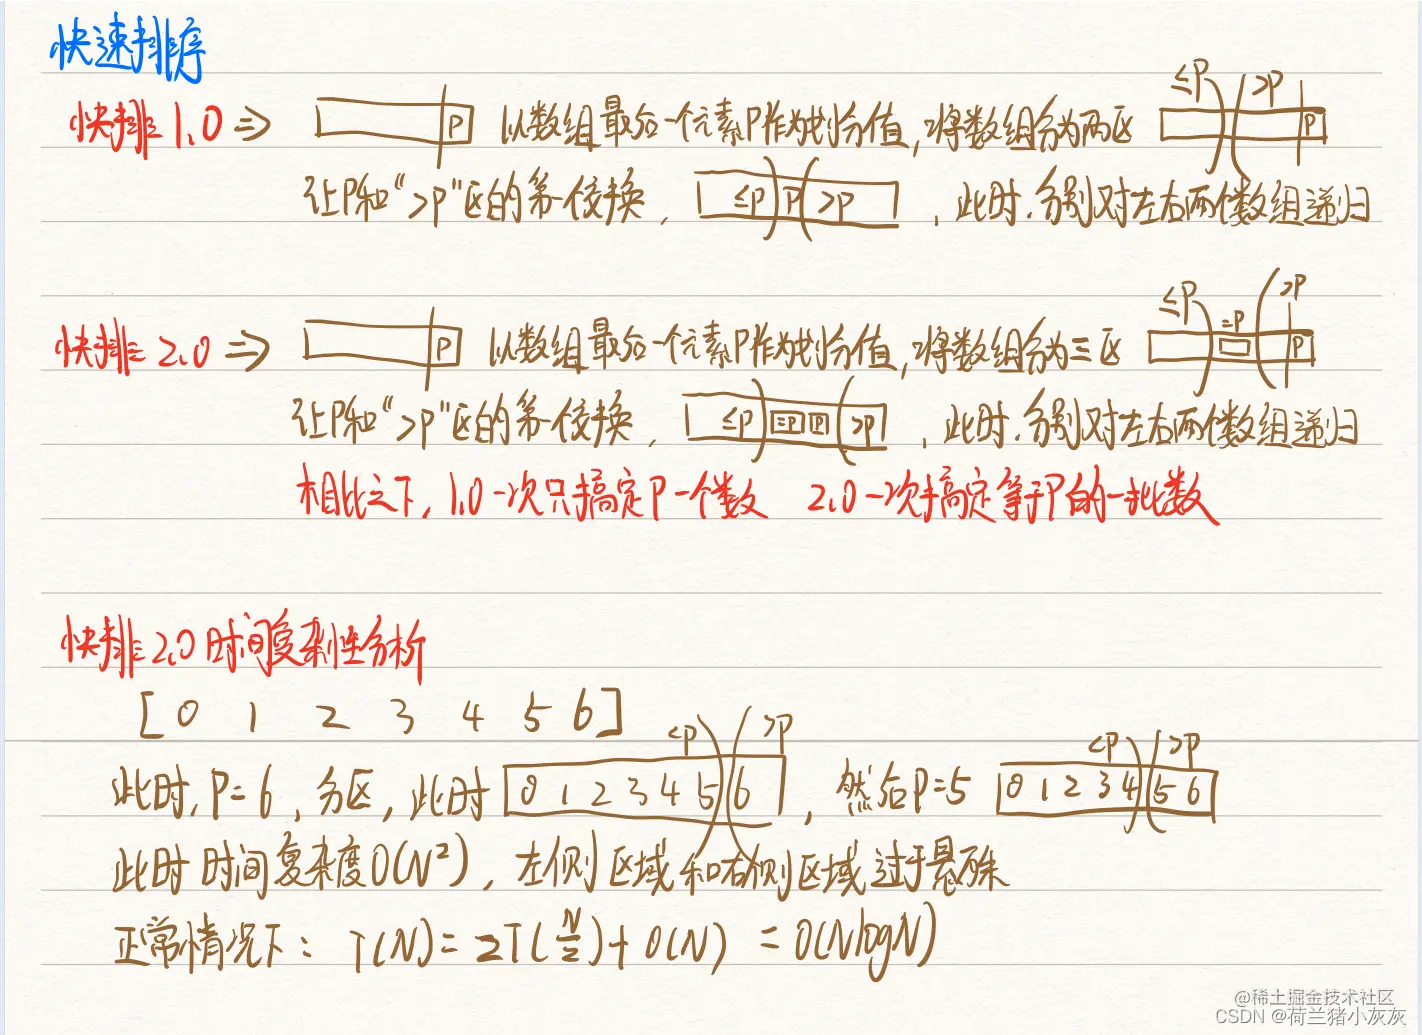 快速排序
快排1.0 => P 以数组最后一个元素P作为划分值,将数组分为两区 ≤P >P P
让P和“>P”区的第一个交换, ≤P P >P ,此时.分别对左右两个数组递归
快排2.0 => P 以数组最后一个元素P作为划分值,将数组分为三区 ≤P =P >P P
让P和“>P”区的第一个交换, ≤P =P P >P ,此时.分别对左右两个数组递归
相比之下,1.0一次只搞定P一个数 2.0一次搞定等于P的一批数
快排2.0时间复杂性分析
[0 1 2 3 4 5 6]
此时,P=6,分区,此时 0 1 2 3 4 5 6 <P >P ,然后P=5 0 1 2 3 4 5 6 <P >P
此时时间复杂度O(N²),左侧区域和右侧区域过于悬殊
正常情况下: T(N)=2T(N/2)+O(N) =O(NlogN)
@稀土掘金技术社区
CSDN @荷兰猪小灰灰